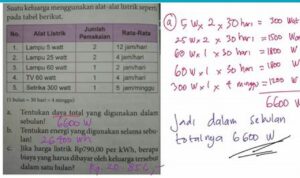 Suatu keluarga menggunakan alat-alat listrik seperti
pada tabel berikut.
No. Alat Listrik Jumlah Pemakaian Rata-Rata
1. Lampu 5 watt 2 12 jam/hari
2. Lampu 25 watt 2 4 jam/hari
3. Lampu 60 watt 1 2 jam/hari
4. TV 60 watt 1 4 jam/hari
5. Setrika 300 watt 1
(1 bulan = 30 hari = 4 minggu)
a. Tentukan daya total yang digunakan dalam
sebulan! 6600 W
b. Tentukan energi yang digunakan selama sebu-
lan!
c. Jika harga listrik Rp790,00 per kWh, berapa
biaya yang harus dibayar oleh keluarga tersebut
dalam satu bulan?
a 5 W x 2 x 30 hari = 300 Watt
25 W x 2 x 30 hari = 1500 Watt
60 W x 1 x 30 hari = 1800 W
60 W x 1 x 30 hari = 1800 W
300 W x 1 x 4 minggu = 1200 W
Jadi dalam sebulan
totalnya 6600 W